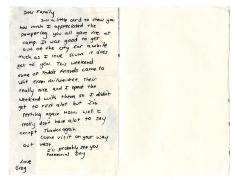 Dear Family
Just a little card to show you
how much I appreciated the
pampering you all gave me at
camp. It was good to get
out of the city for awhile
much as I love town it does
get to you. This weekend
some of Todds friends came to
visit from Milwaukee. Their
really nice and I spent the
weekend with them so I didn't
get to rest alot but I'm
resting again now. Well I
really don't have alot to say
except Thanks again
Come visit on your way
out west.
I'll probably see you
Memorial Day
Love
Greg